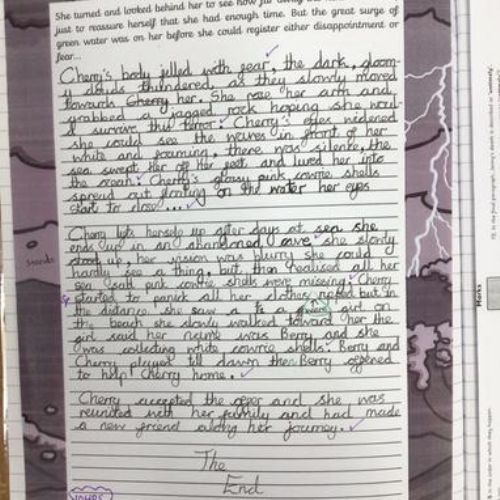 She turned and looked behind her to see how far away the
just to reassure herself that she had enough time. But the great surge of
green water was on her before she could register either disappointment or
fear...
Cherry's body jelled with fear, the dark, gloom-
y clouds thundered, as they slowly moved
towards Cherry her. She rose her arm and
grabbed a jagged rock hoping she woul-
d survive this terror. Cherry's eyes widened
she could see the waves in front of her
white and foaming, there was silence, the
sea swept her off her feet and lured her into
the ocean. Cherry's glossy pink cowrie shells
spread out floating on the water her eyes
start to close...
Cherry lifts herself up after days at sea she
ends up in an abandoned cave she slowly
stood up, her vision was blurry she could
hardly see a thing, but then realised all her
sea salt pink cowrie shells were missing. Cherry
started to panick all her clothes ripped but in
the distance she saw a girl on
the beach she slowly walked toward her the
girl said her name was Berry and she
was collecting white cowrie shells. Berry and
Cherry played till dawn then Berry offered
to help Cherry home.
Cherry accepted the offer and she was
reunited with her family and had made
a new friend along her journey.
The
End
Marks